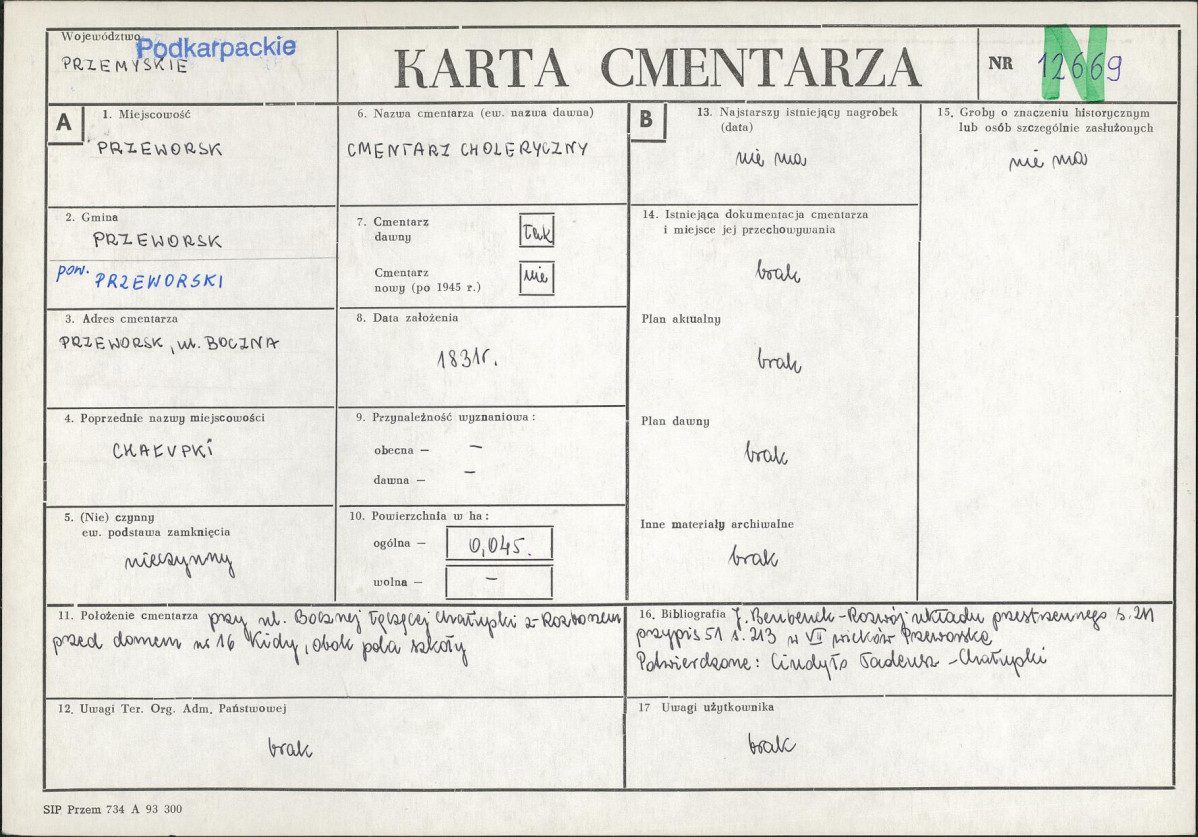 Województwo
Podkarpackie
PRZEMYSKIE
KARTA CMENTARZA
NR 12669
N
A
1. Miejscowość
PRZEWORSK
2. Gmina
PRZEWORSK
pow. PRZEWORSKI
3. Adres cmentarza
PRZEWORSK, ul. BOCZNA
4. Poprzednie nazwy miejscowości
CHAŁUPKI
5. (Nie) czynny
ew. podstawa zamknięcia
nieczynny
6. Nazwa cmentarza (ew. nazwa dawna)
CMENTARZ CHOLERYCZNY
7. Cmentarz
dawny
tak
Cmentarz
nowy (po 1945 r.)
nie
8. Data założenia
1831r.
9. Przynależność wyznaniowa:
obecna — –
dawna — –
10. Powierzchnia w ha:
ogólna — 0,045.
wolna — –
B
13. Najstarszy istniejący nagrobek
(data)
nie ma
14. Istniejąca dokumentacja cmentarza
i miejsce jej przechowywania
brak
Plan aktualny
brak
Plan dawny
brak
Inne materiały archiwalne
brak
15. Groby o znaczeniu historycznym
lub osób szczególnie zasłużonych
nie ma
11. Położenie cmentarza przy ul. Bocznej łączącej Chałupki z Rozborzem
przed domem nr 16 Kidy, obok pola szkoły
16. Bibliografia J. Benbenek - Rozwój układu przestrzennego s. 211
przypis 51 s. 213 w VII wieków Przeworska
Potwierdzone: Cindyło Tadeusz - Chałupki
12. Uwagi Ter. Org. Adm. Państwowej
brak
17 Uwagi użytkownika
brak
SIP Przem 734 A 93 300